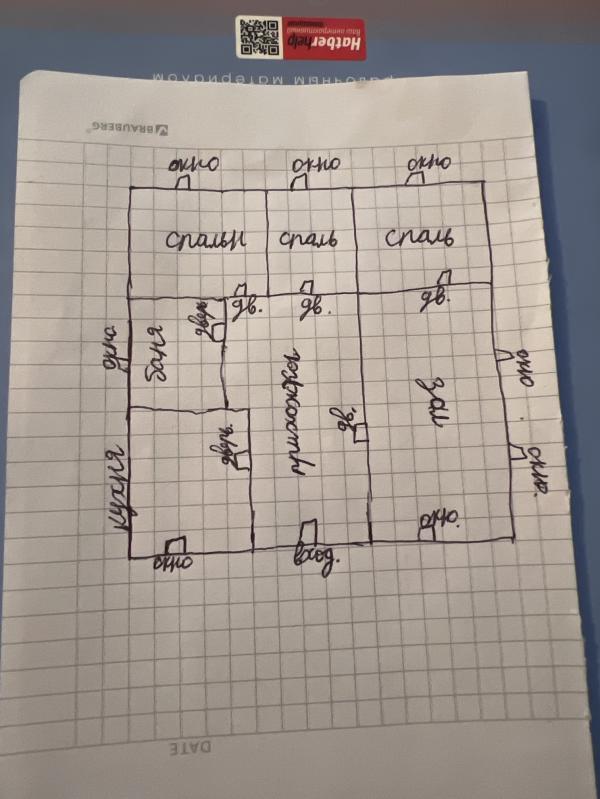 Hatber help
Ваш интерактивный
помощник
BRAUBERG®
окно окно окно
спальн спаль спаль
дв. дв. дв.
дверь
окно
баня
прихожка
зал
окно
дв.
дверь.
кухня
окно.
окно.
окно
вход.
DATE